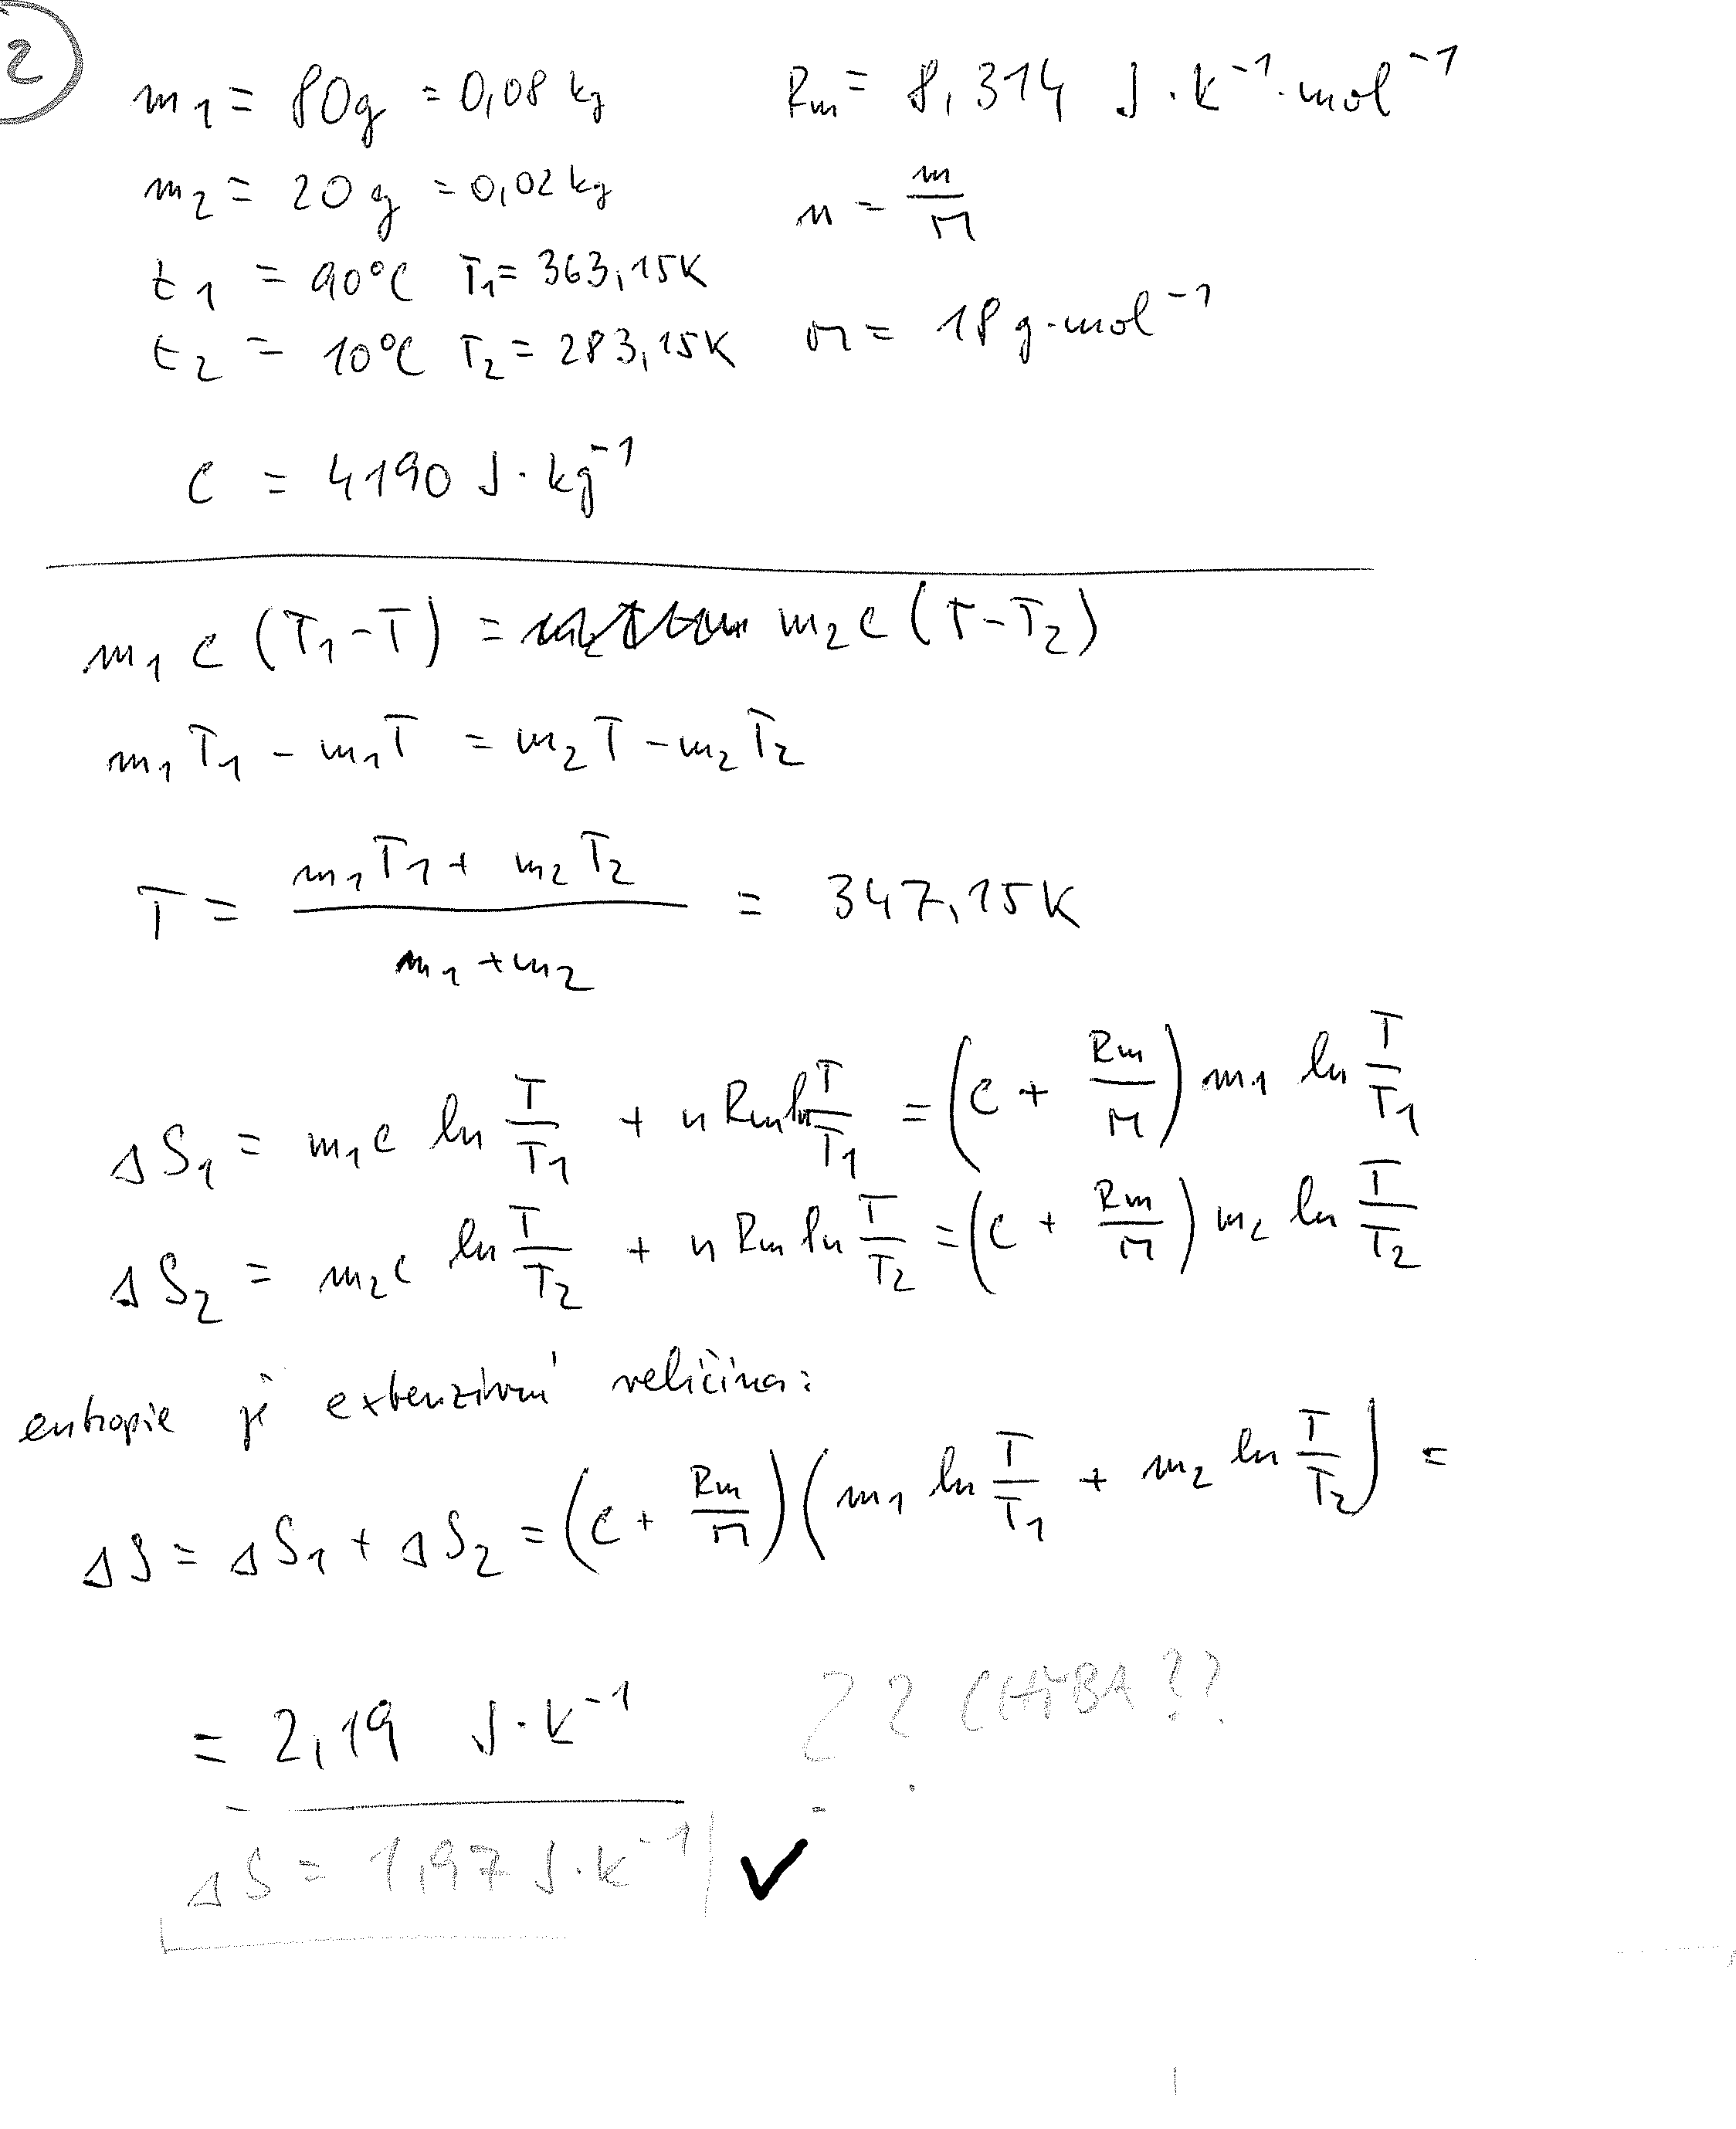 2
m₁ = 80g = 0,08 kg    Rm = 8,314 J·K⁻¹·mol⁻¹
m₂ = 20g = 0,02 kg    n = m/M
t₁ = 90°C  T₁ = 363,15K
t₂ = 10°C  T₂ = 283,15K    M = 18 g·mol⁻¹
c = 4190 J·kg⁻¹
m₁ c (T₁-T) = m₂ c (T-T₂)
m₁T₁ - m₁T = m₂T - m₂T₂
T = (m₁T₁ + m₂T₂)/(m₁+m₂) = 347,15K
ΔS₁ = m₁c ln T/T₁ + n Rm ln T/T₁ = (c + Rm/M) m₁ ln T/T₁
ΔS₂ = m₂c ln T/T₂ + n Rm ln T/T₂ = (c + Rm/M) m₂ ln T/T₂
entropie je extenzivní veličina:
ΔS = ΔS₁ + ΔS₂ = (c + Rm/M)(m₁ ln T/T₁ + m₂ ln T/T₂) =
= 2,19 J·K⁻¹    ?? CHYBA??
ΔS = 1,97 J·K⁻¹ ✓